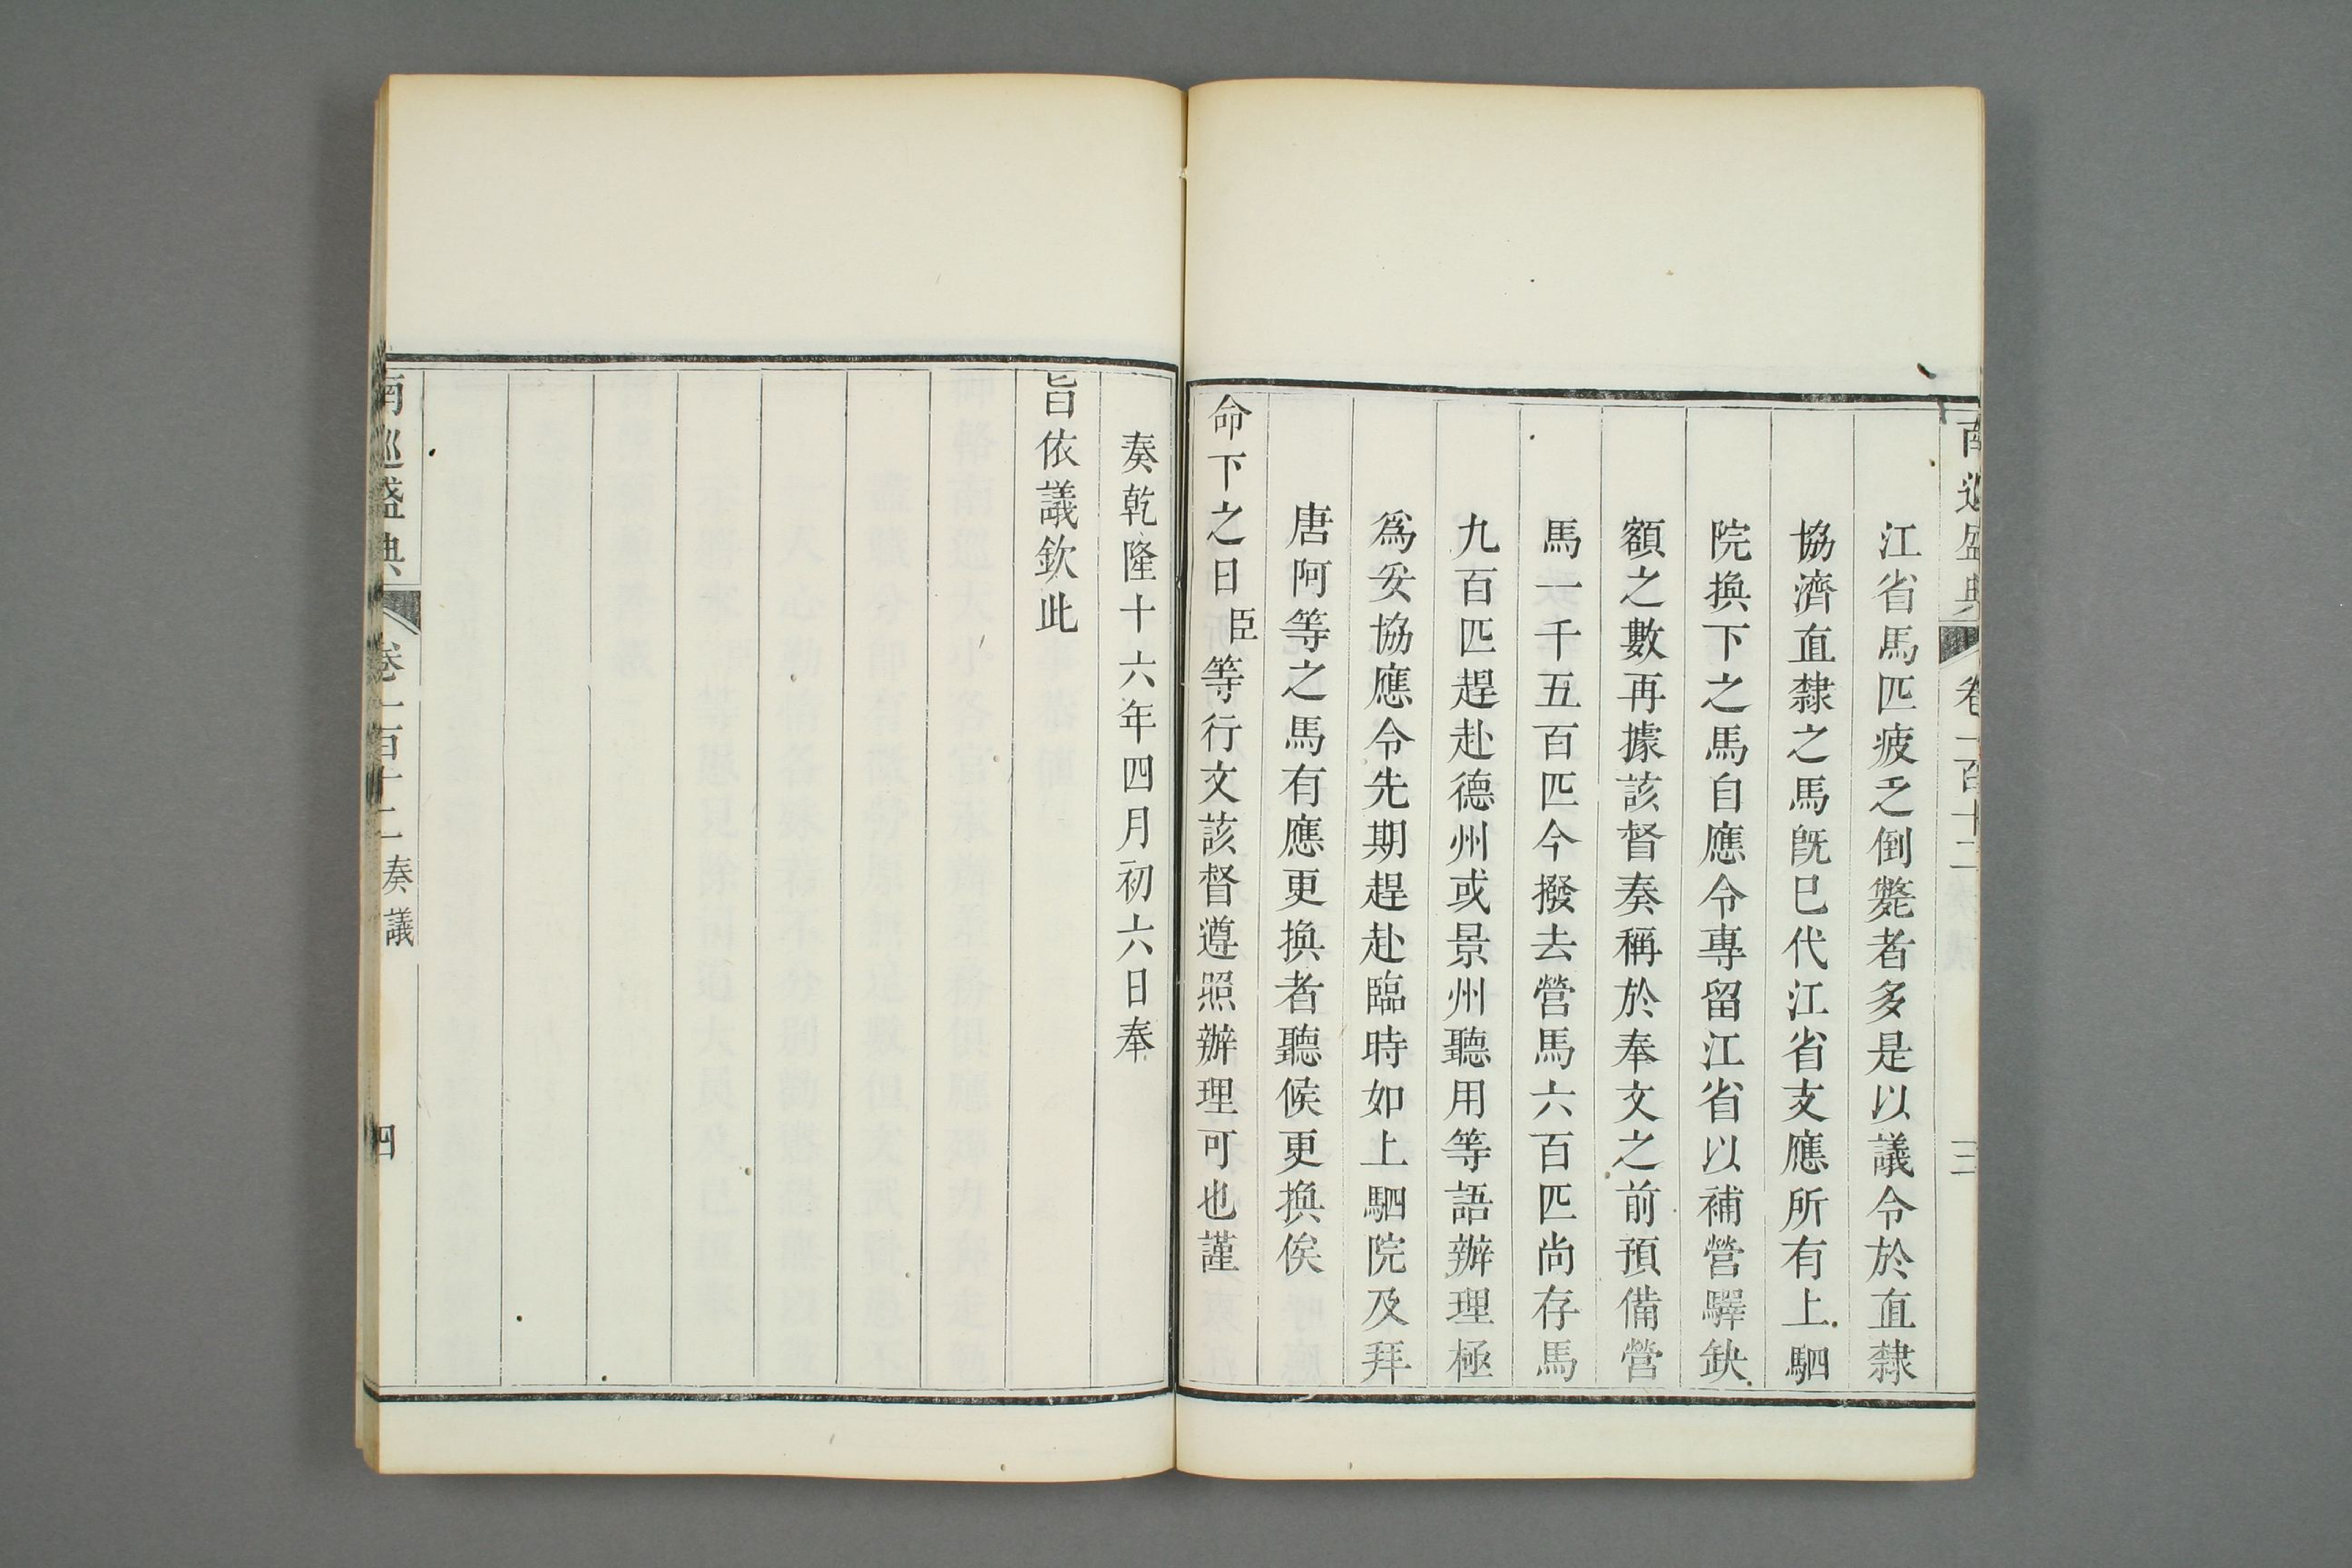 南巡盛典 卷一百十二 三
江省馬匹疲乏倒斃者多是以議令於直隸
協濟直隸之馬旣巳代江省支應所有上駟
院換下之馬自應令專留江省以補營驛缺
額之數再據該督奏稱於奉文之前預備營
馬一千五百匹今撥去營馬六百匹尚存馬
九百匹趕赴德州或景州聽用等語辦理極
爲妥協應令先期趕赴臨時如上駟院及拜
唐阿等之馬有應更換者聽候更換俟
命下之日臣等行文該督遵照辦理可也謹
奏乾隆十六年四月初六日奉
旨依議欽此
南巡盛典 卷一百十二 奏議 四